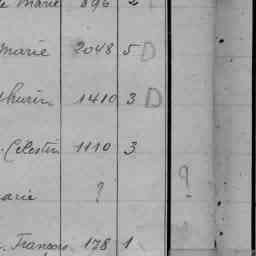 Marie 896 2
Marie 2048 5 D
thurin 1410 3 D
Célestin 1110 3
arie ? ?
François 178 1